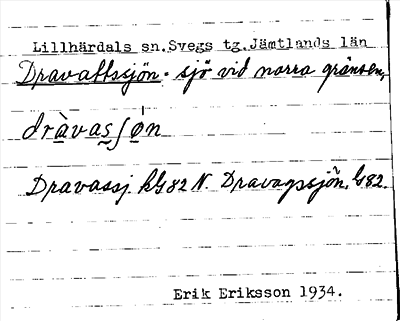 Lillhärdals sn. Svegs tg. Jämtlands län
Dravattssjön. sjö vid norra gränsen,
dràvas̰ʃǫ́n
Dravassj. kG 82 N. Dravagssjön, G82.
Erik Eriksson 1934.